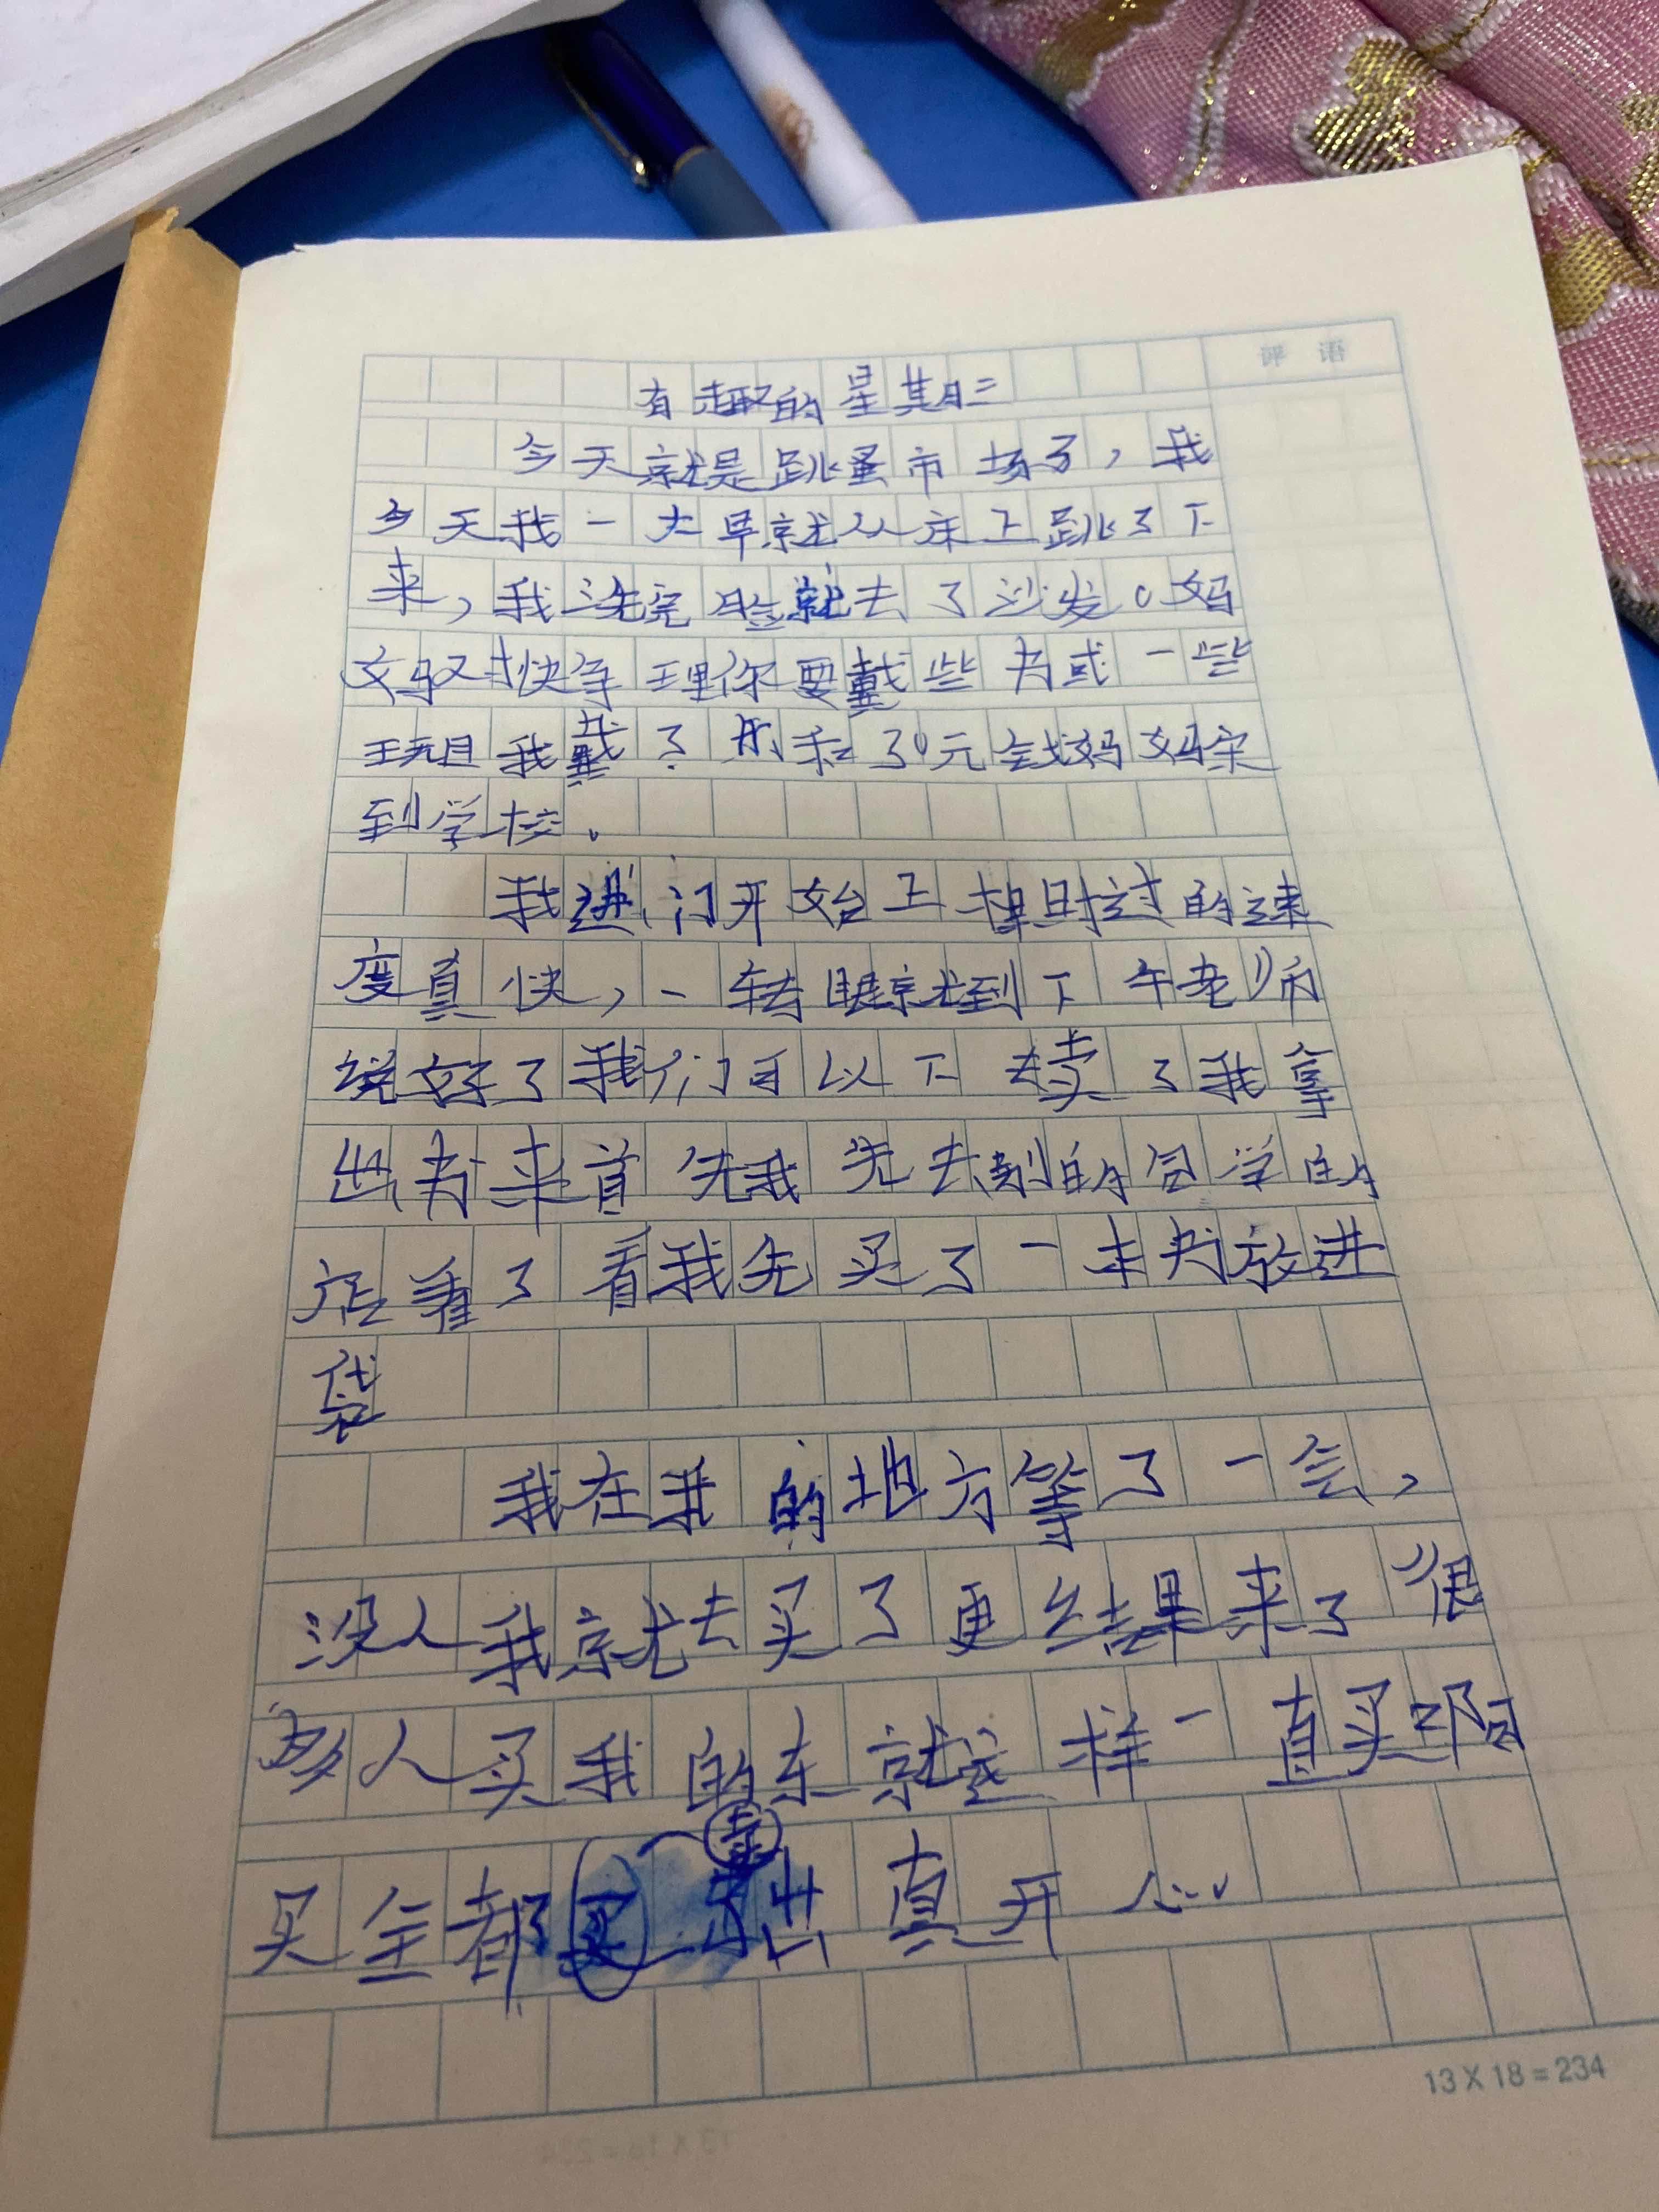 评语
有趣的星其日二
今天就是跳蚤市场了，我
今天我一大早就从床上跳了下
来，我洗完脸就去了沙发。妈
妈又快等理你要戴些书或一些
玩具我戴了 和30元钱妈妈宋
到学校。
我进门开始上 时过的速
度真快，一转眼就到下午老师
说好了我们可以下去卖了我拿
出书来首先我先去别的同学的
店看了看我先买了一本书放进
袋
我在我的地方等了一会，
没人我就去买了更结果来了很
多人买我的东就这样一直买啊
买全都买卖出真开心
13X18=234